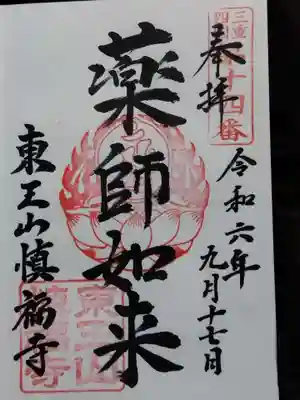 奉拝
三重
四国
第十四番
令和六年
九月十七日
薬師如来
東王山慎福寺
東王山
慎福寺